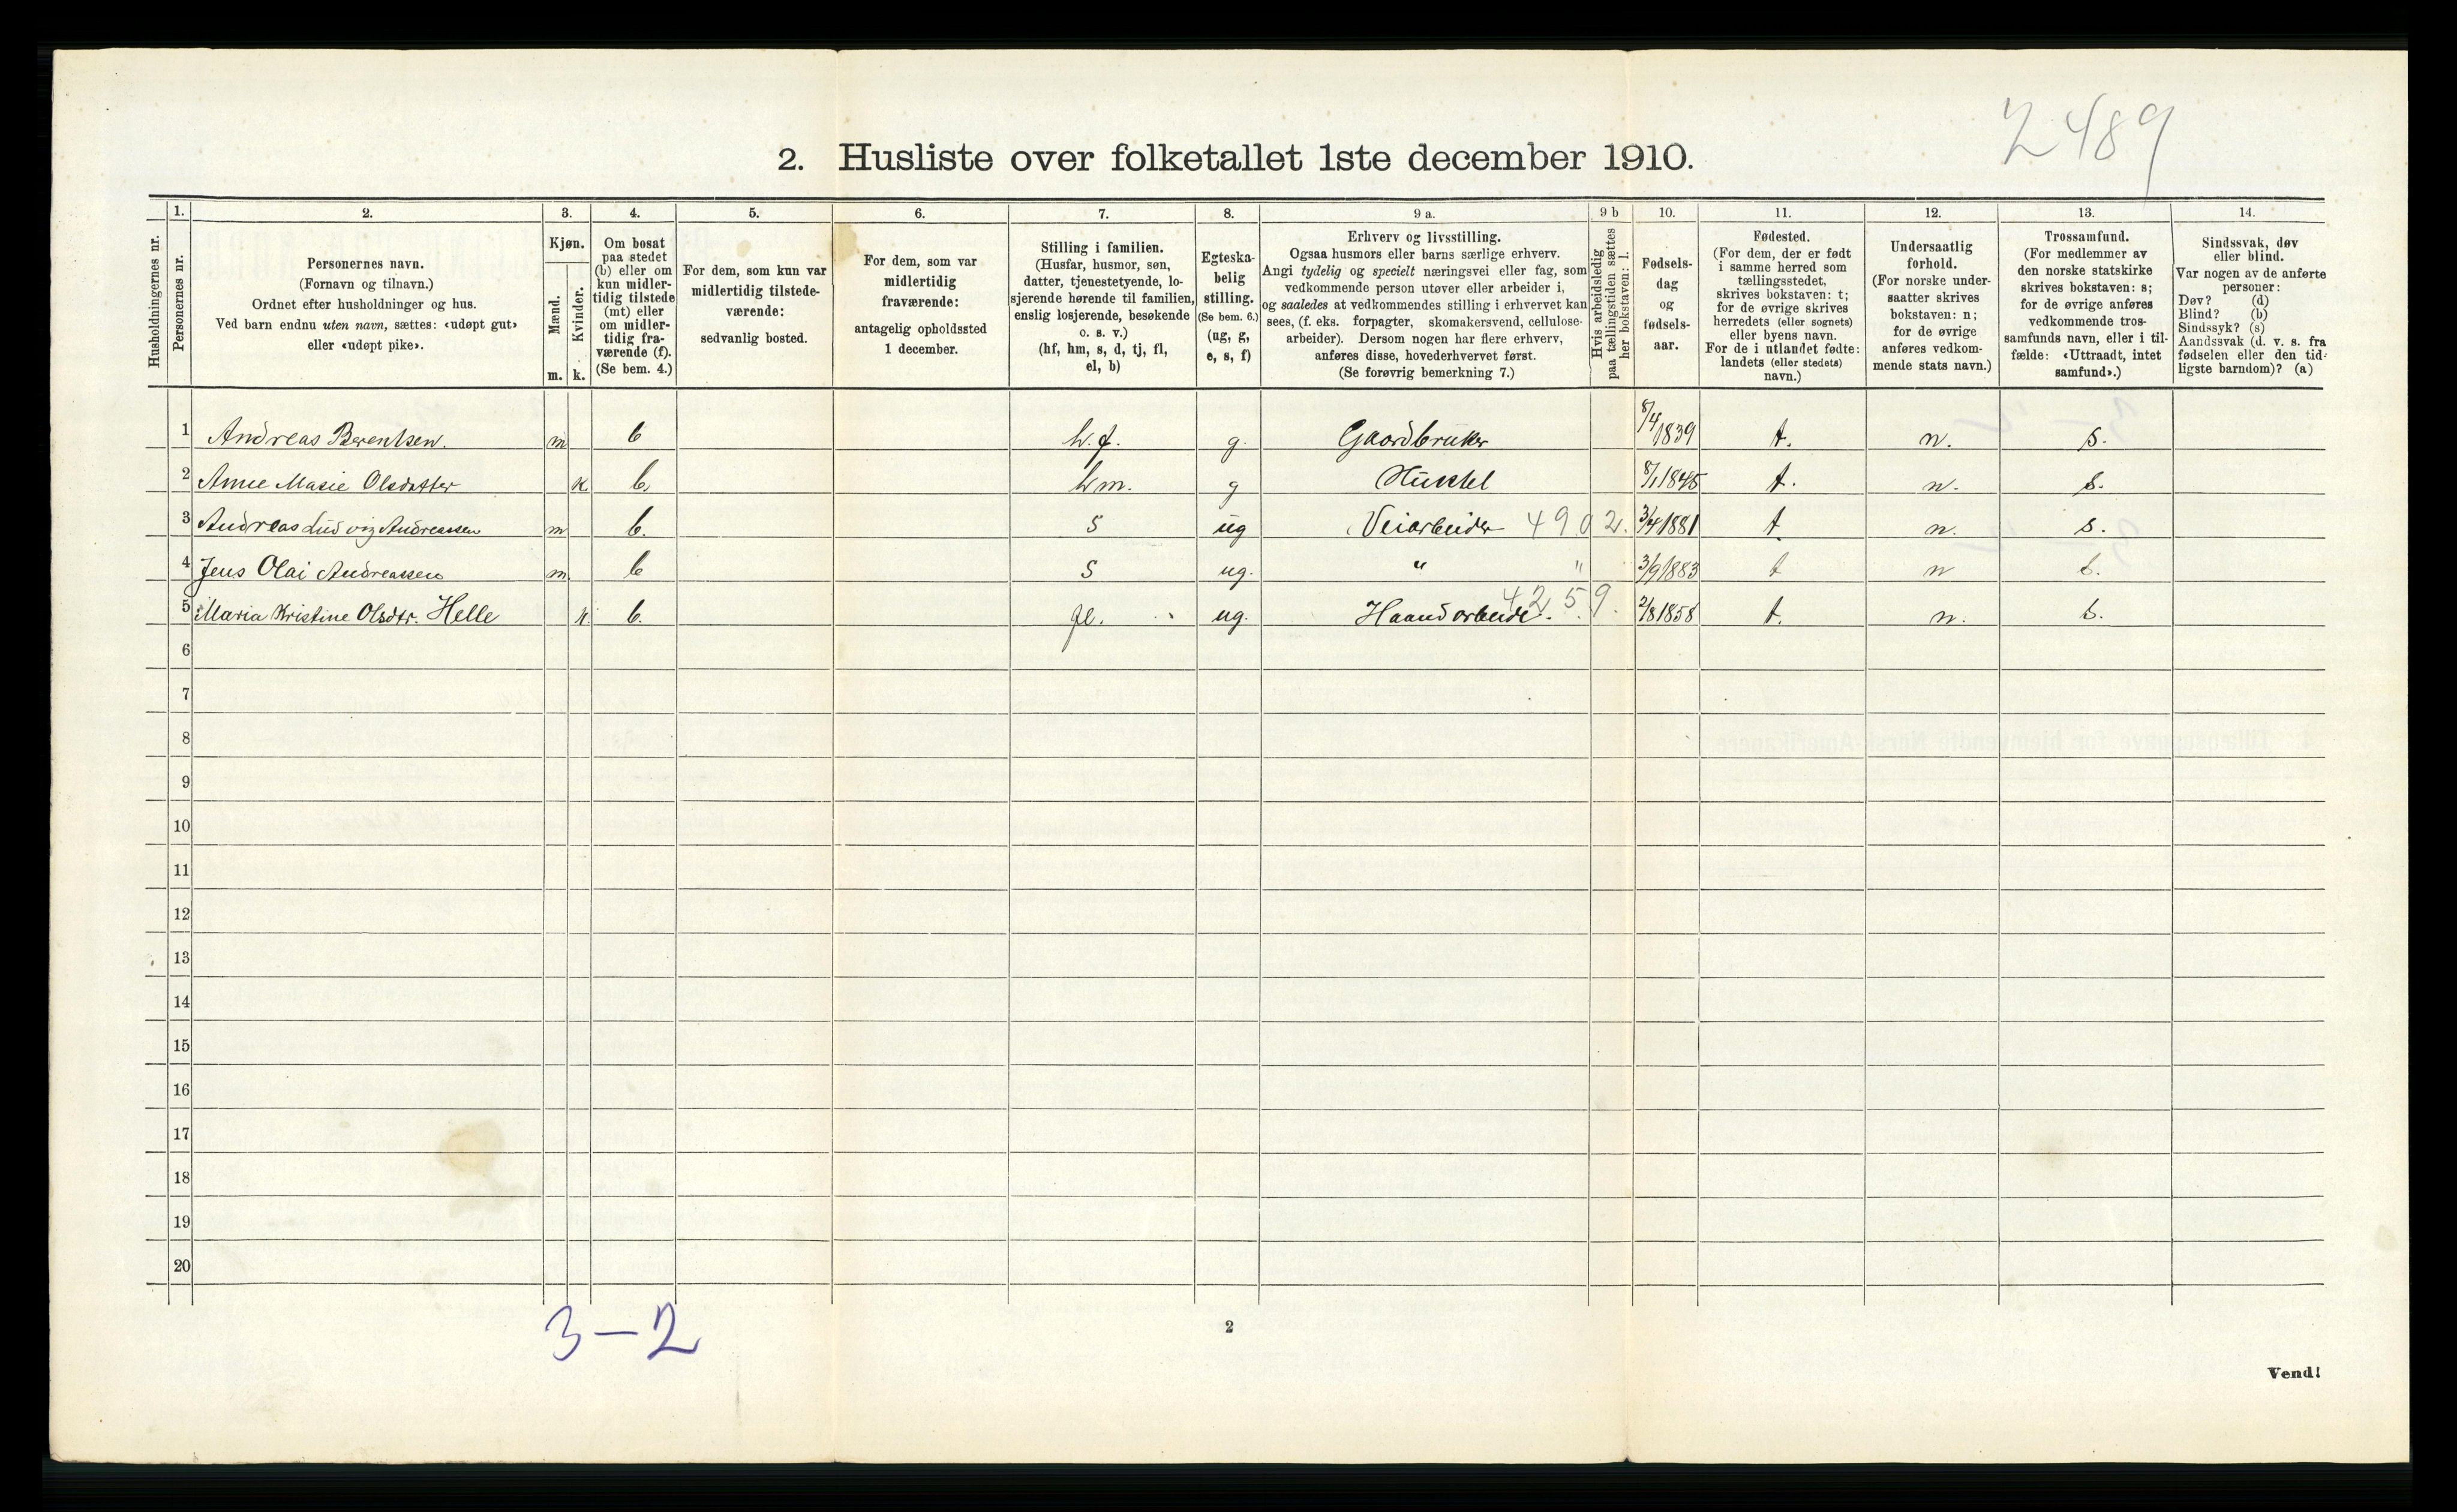 2489
2. Husliste over folketallet 1ste december 1910.
Husholdningernes nr.
1.
Personernes nr.
2.
Personernes navn.
(Fornavn og tilnavn.)
Ordnet efter husholdninger og hus.
Ved barn endnu uten navn, sættes: «udøpt gut»
eller «udøpt pike».
3.
Kjøn.
Mænd.
Kvinder.
m. k.
4.
Om bosat
paa stedet
(b) eller om
kun midler-
tidig tilstede
(mt) eller
om midler-
tidig fra-
værende (f).
(Se bem. 4.)
5.
For dem, som kun var
midlertidig tilstede-
værende:
sedvanlig bosted.
6.
For dem, som var
midlertidig
fraværende:
antagelig opholdssted
1 december.
7.
Stilling i familien.
(Husfar, husmor, søn,
datter, tjenestetyende, lo-
sjerende hørende til familien,
enslig losjerende, besøkende
o. s. v.)
(hf, hm, s, d, tj, fl,
el, b)
8.
Egteska-
belig
stilling.
(Se bem. 6.)
(ug, g,
e, s, f)
9 a.
Erhverv og livsstilling.
Ogsaa husmors eller barns særlige erhverv.
Angi tydelig og specielt næringsvei eller fag, som
vedkommende person utøver eller arbeider i,
og saaledes at vedkommendes stilling i erhvervet kan
sees, (f. eks. forpagter, skomakersvend, cellulose-
arbeider). Dersom nogen har flere erhverv,
anføres disse, hovederhvervet først.
(Se forøvrig bemerkning 7.)
9 b
Hvis arbeidsledig
paa tællingstiden sættes
her bokstaven: l.
10.
Fødsels-
dag
og
fødsels-
aar.
11.
Fødested.
(For dem, der er født
i samme herred som
tællingsstedet,
skrives bokstaven: t;
for de øvrige skrives
herredets (eller sognets)
eller byens navn.
For de i utlandet fødte:
landets (eller stedets)
navn.)
12.
Undersaatlig
forhold.
(For norske under-
saatter skrives
bokstaven: n;
for de øvrige
anføres vedkom-
mende stats navn.)
13.
Trossamfund.
(For medlemmer av
den norske statskirke
skrives bokstaven: s;
for de øvrige anføres
vedkommende tros-
samfunds navn, eller i til-
fælde: «Uttraadt, intet
samfund».)
14.
Sindssvak, døv
eller blind.
Var nogen av de anførte
personer:
Døv? (d)
Blind? (b)
Sindssyk? (s)
Aandssvak (d. v. s. fra
fødselen eller den tid-
ligste barndom)? (a)
1 Andreas Berentsen. m b h.f. g. Gaardbruker 8/4 1839 t. n. s.
2 Anne Marie Olsdatter k. b. hm. g 8/1 1845 t. n. s.
3 Andreas Ludvig Andreassen m b. s ug Veiarbeider 4902. 3/4 1881 t. n. s.
4 Jens Olai Andreassen m. b s ug. " " 3/9 1883 t n s.
5 Maria Kristine Olsdtr. Helle k. b. fl. ug. Haandarbeide. 4259. 2/8 1858 t. n. s.
6
7
8
9
10
11
12
13
14
15
16
17
18
19
20
3-2
2
Vend!